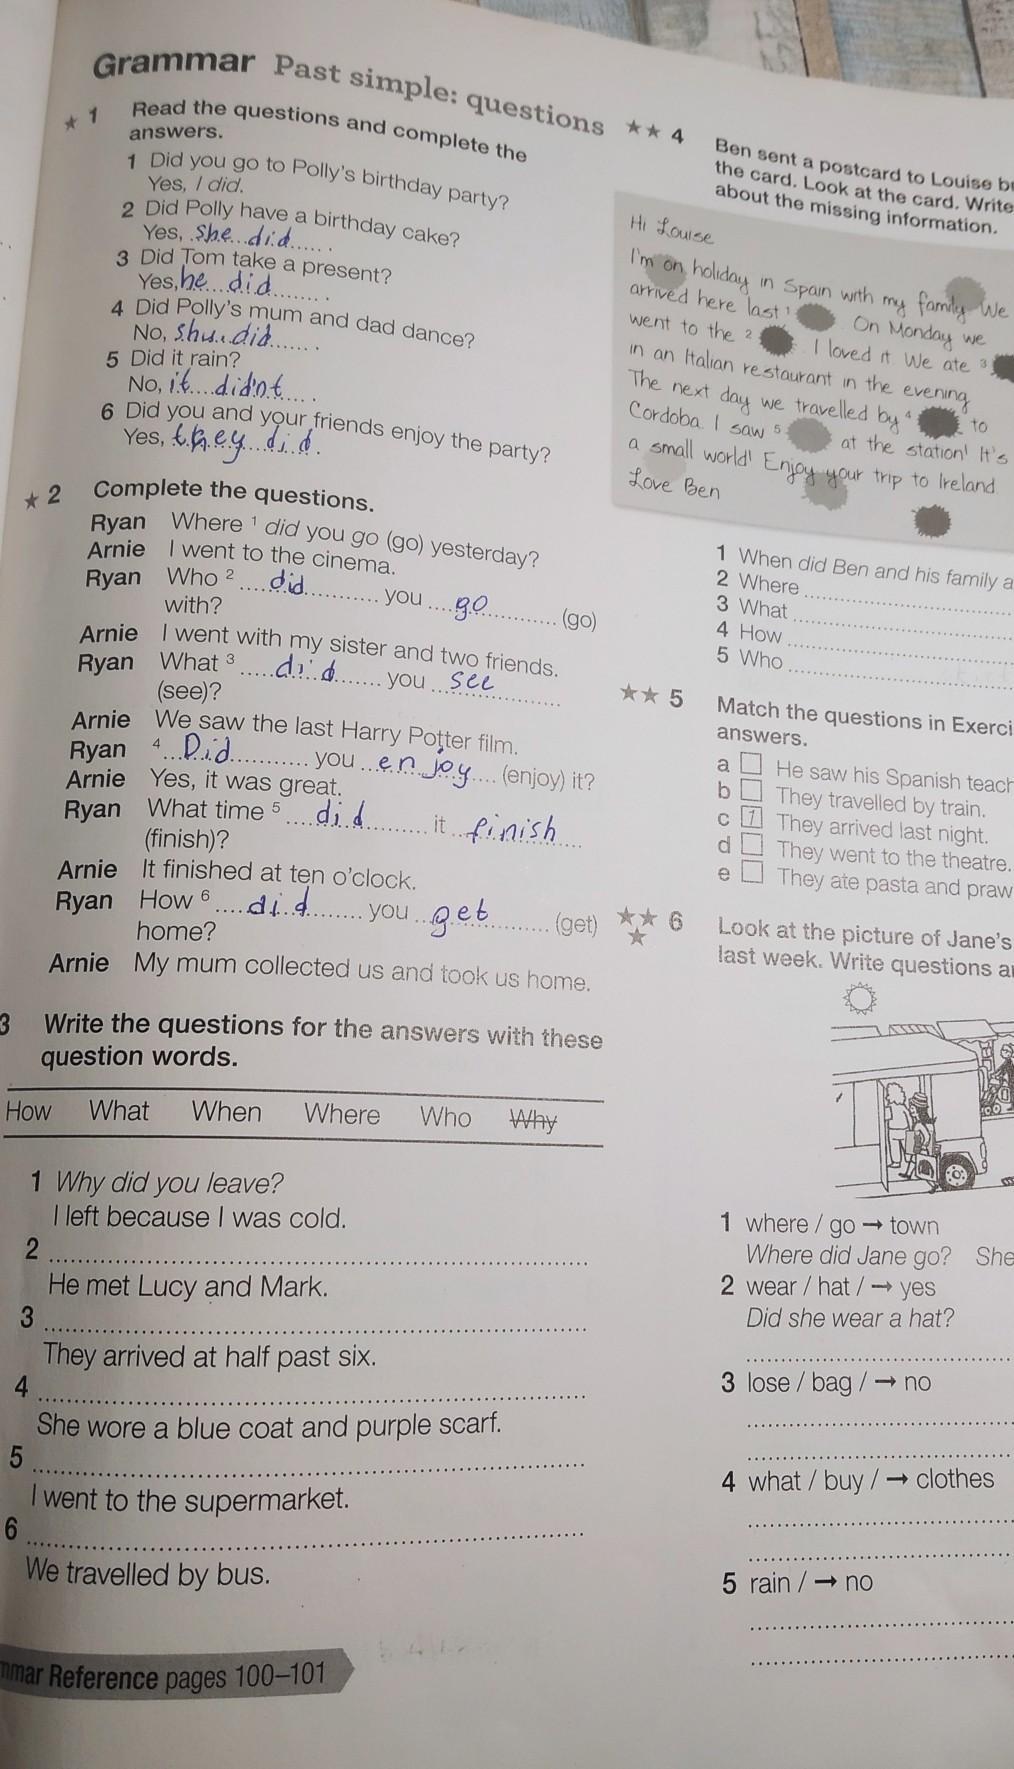 Grammar Past simple: questions
★ 1 Read the questions and complete the
answers.
1 Did you go to Polly's birthday party?
Yes, I did.
2 Did Polly have a birthday cake?
Yes, she did
3 Did Tom take a present?
Yes, he did
4 Did Polly's mum and dad dance?
No, did
5 Did it rain?
No, it didn't
6 Did you and your friends enjoy the party?
Yes, they did.
★ 2 Complete the questions.
Ryan Where 1 did you go (go) yesterday?
Arnie I went to the cinema.
Ryan Who 2 did you go (go)
with?
Arnie I went with my sister and two friends.
Ryan What 3 did you see
(see)?
Arnie We saw the last Harry Potter film.
Ryan 4 Did you enjoy (enjoy) it?
Arnie Yes, it was great.
Ryan What time 5 did it finish
(finish)?
Arnie It finished at ten o'clock.
Ryan How 6 did you get (get)
home?
Arnie My mum collected us and took us home.
3 Write the questions for the answers with these
question words.
How What When Where Who Why
1 Why did you leave?
I left because I was cold.
2
He met Lucy and Mark.
3
They arrived at half past six.
4
She wore a blue coat and purple scarf.
5
I went to the supermarket.
6
We travelled by bus.
Reference pages 100–101
★★ 4 Ben sent a postcard to Louise
the card. Look at the card. Write
about the missing information.
Hi Louise
I'm on holiday in Spain with my family. We
arrived here last 1 . On Monday we
went to the 2 . I loved it. We ate 3
in an Italian restaurant in the evening
The next day we travelled by 4 to
Cordoba. I saw 5 at the station! It's
a small world! Enjoy your trip to Ireland.
Love Ben
1 When did Ben and his family
2 Where
3 What
4 How
5 Who
★★ 5 Match the questions in
answers.
a He saw his Spanish
b They travelled by train.
c 1 They arrived last night.
d They went to the theatre.
e They ate pasta and
★★★ 6 Look at the picture of Jane's
last week. Write questions
1 where / go → town
Where did Jane go? She
2 wear / hat / → yes
Did she wear a hat?
3 lose / bag / → no
4 what / buy / → clothes
5 rain / → no